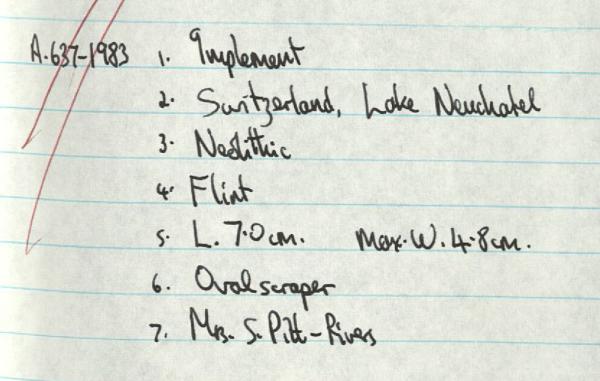 A.637-1983 1. Implement
2. Switzerland, Lake Neuchatel
3. Neolithic
4. Flint
5. L. 7.0cm. Max.W. 4.8cm.
6. Oval scraper
7. Mrs. S. Pitt-Rivers